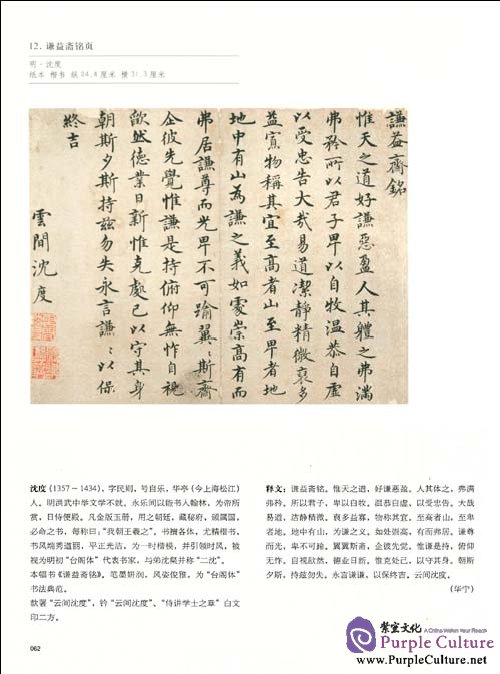 12. 谦益斋铭页
明·沈度
纸本 楷书 纵24.8厘米 横31.3厘米
謙益齋銘
惟天之道好謙惡盈人其軆之弗滿
弗矜所以君子卑以自牧温恭自虛
以受忠告大哉易道潔靜精微裒多
益寡物稱其宜至高者山至卑者地
地中有山為謙之義如處崇高有而
弗居謙尊而光卑不可踰翼〻斯齋
企彼先覺惟謙是持俯仰無怍自視
歉然德業日新惟克處己以守其身
朝斯夕斯持兹勿失永言謙〻以保
終吉
雲間沈度
沈度(1357-1434),字民则,号自乐,华亭(今上海松江)
人。明洪武中举文学不就。永乐间以能书入翰林,为帝所
赏,日侍便殿。凡金版玉册,用之朝廷,藏秘府,颁属国,
必命之书,每称曰:“我朝王羲之”。书擅各体,尤精楷书。
书风端秀遒丽,平正光洁,为一时楷模,并引领时风,被
视为明初“台阁体”代表书家,与弟沈粲并称“二沈”。
本幅书《谦益斋铭》,笔墨妍润,风姿俊雅,为“台阁体”
书法典范。
款署“云间沈度”,钤“云间沈度”、“侍讲学士之章”白文
印二方。
释文:谦益斋铭。惟天之道,好谦恶盈。人其体之,弗满
弗矜。所以君子,卑以自牧。温恭自虚,以受忠告。大哉
易道,洁静精微。裒多益寡,物称其宜。至高者山,至卑
者地。地中有山,为谦之义。如处崇高,有而弗居。谦尊
而光,卑不可踰。翼翼斯斋,企彼先觉。惟谦是持,俯仰
无怍。自视歉然,德业日新。惟克处己,以守其身。朝斯
夕斯,持兹勿失。永言谦谦,以保终吉。云间沈度。
(华宁)
062
紫宣文化 A China Within Your Reach
Purple Culture
www.PurpleCulture.net